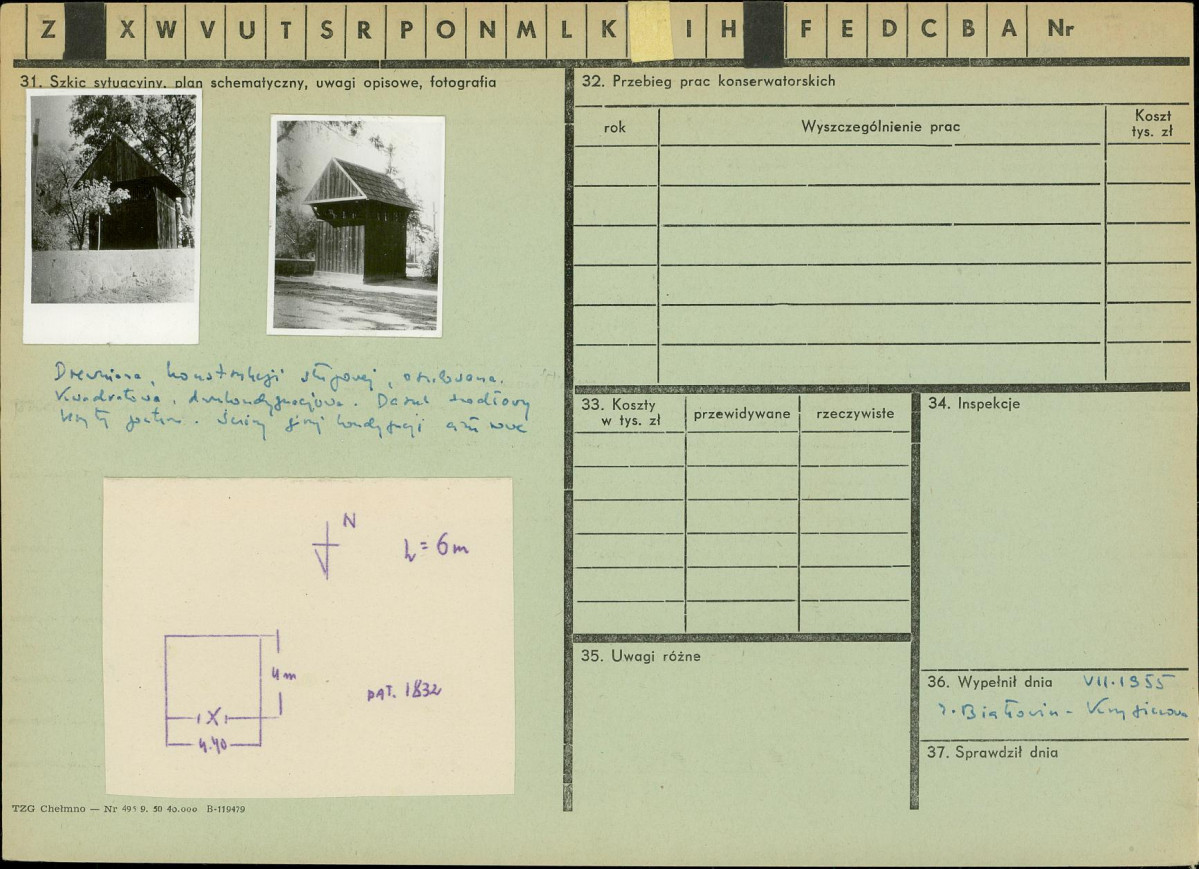 Z X W V U T S R P O N M L K I H F E D C B A Nr
31. Szkic sytuacyjny, plan schematyczny, uwagi opisowe, fotografia
Drewniana, konstrukcji słupowej, oszalowana.
Kwadratowa, dwukondygnacjowa. Dach siodłowy
kryty gontem. Ściany górnej kondygnacji
N
h = 6m
4m
X
4.40
DAT. 1832
TZG Chełmno — Nr 495 9. 50 40.000 B-119479
32. Przebieg prac konserwatorskich
rok
Wyszczególnienie prac
Koszt
tys. zł
33. Koszty
w tys. zł
przewidywane
rzeczywiste
34. Inspekcje
35. Uwagi różne
36. Wypełnił dnia VII.1955
37. Sprawdził dnia